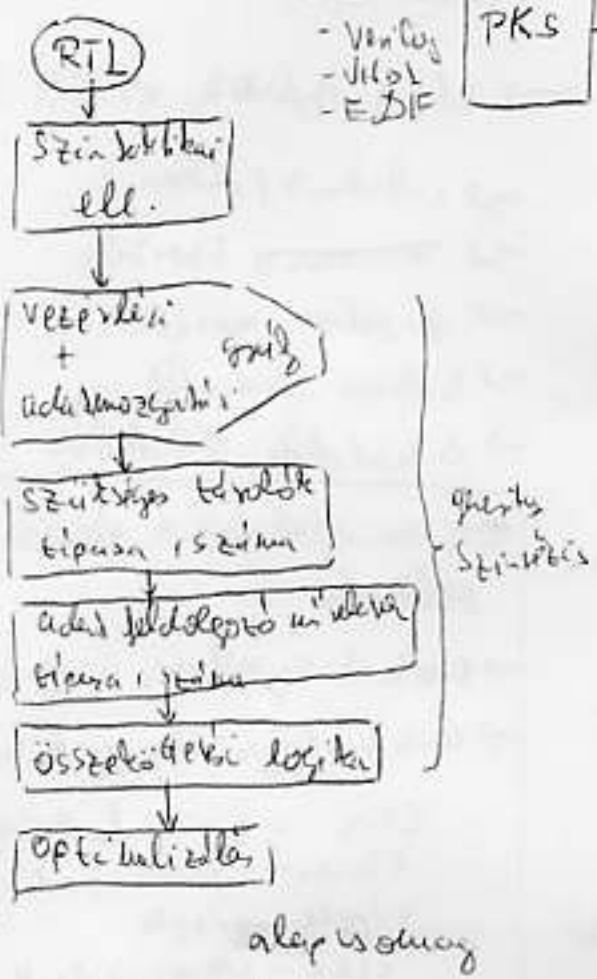 RTL
- Verilog
- VHDL
- EDIF
PKS
Szintaktikai
ell.
vezérlési
+
gráf
adatmozgatási
szükséges tárolók
típusa, száma
adat feldolgozó művelet
típusa, száma
összekötetési logika
Optimalizálás
szintézis